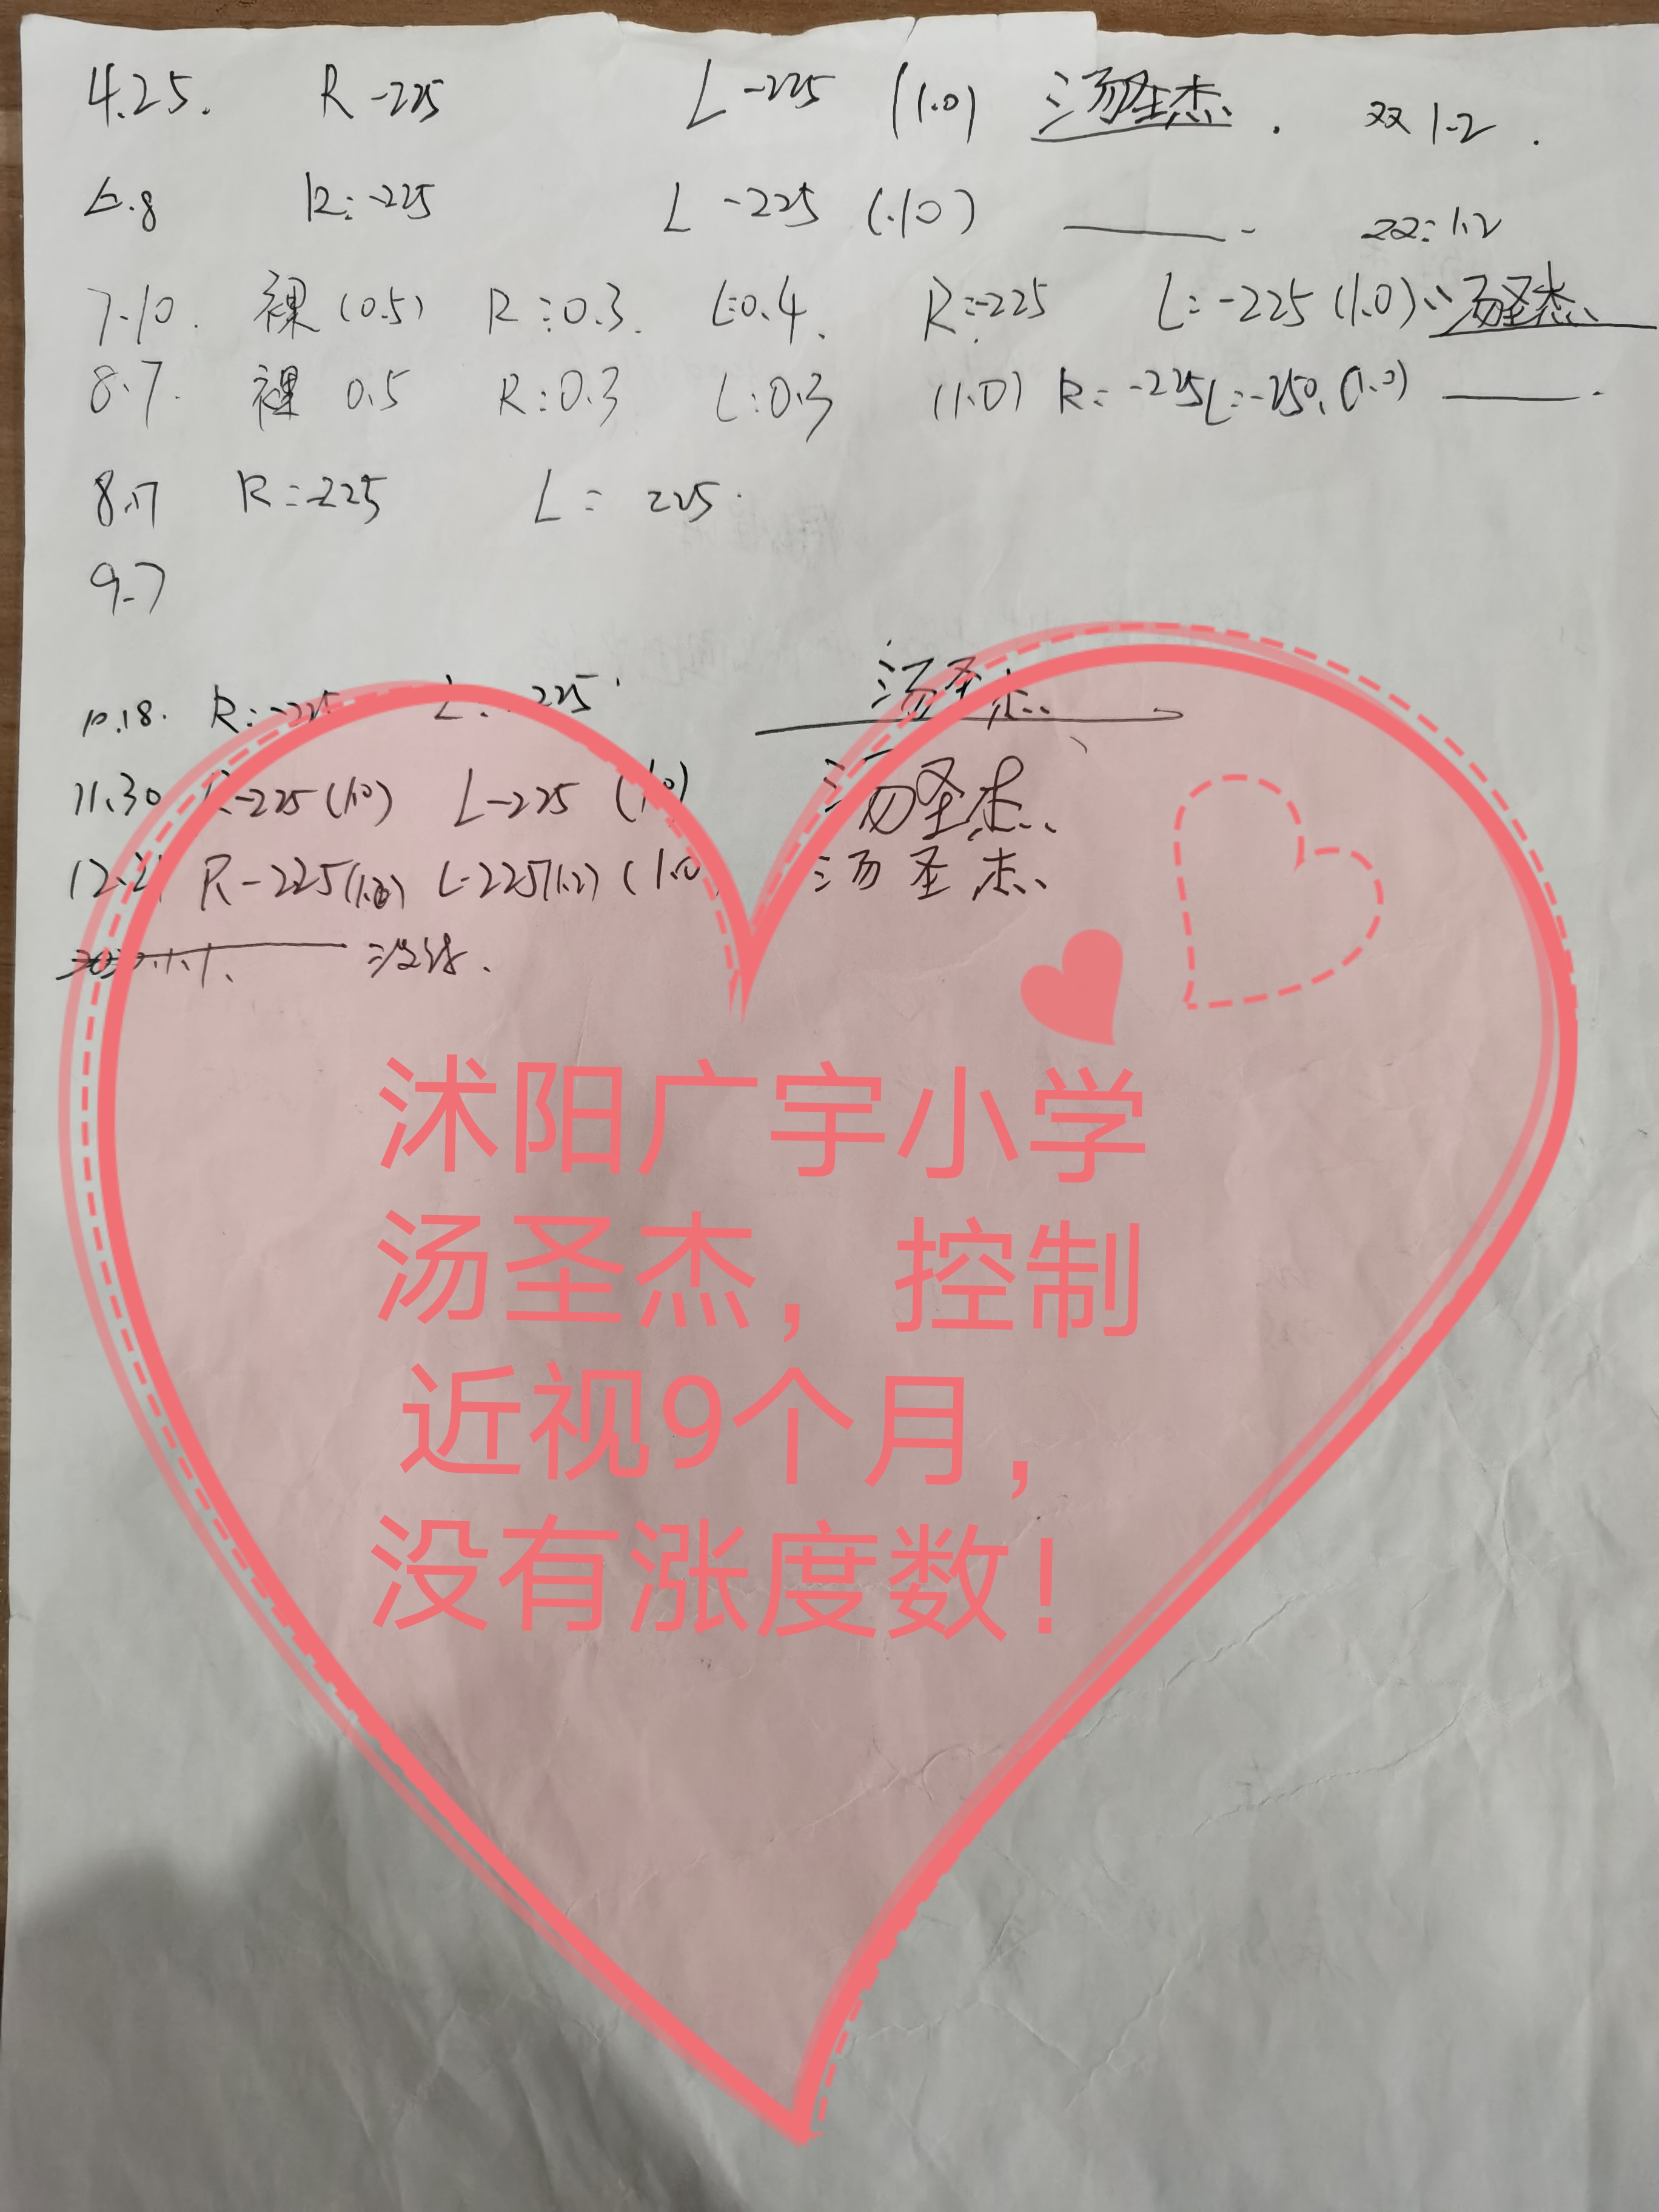 4.25. R -225 L -225 (1.0) 汤圣杰. 双 1.2.
6.8 R: -225 L -225 (1.0) 双: 1.2
7.10. 裸 (0.5) R: 0.3. L:0.4. R: -225 L: -225 (1.0) 汤圣杰
8.7. 裸 0.5 R: 0.3 L: 0.3 (1.0) R: -225 L: -250. (1.0)
8.17 R: -225 L: 225.
9.7
10.18. R: -225 L: -225 汤圣杰
11.30 R -225 (1.0) L -225 (1.0) 汤圣杰
12.21 R -225 (1.0) L -225 (1.2) (1.0) 汤圣杰
沭阳广宇小学
汤圣杰，控制
近视9个月，
没有涨度数！